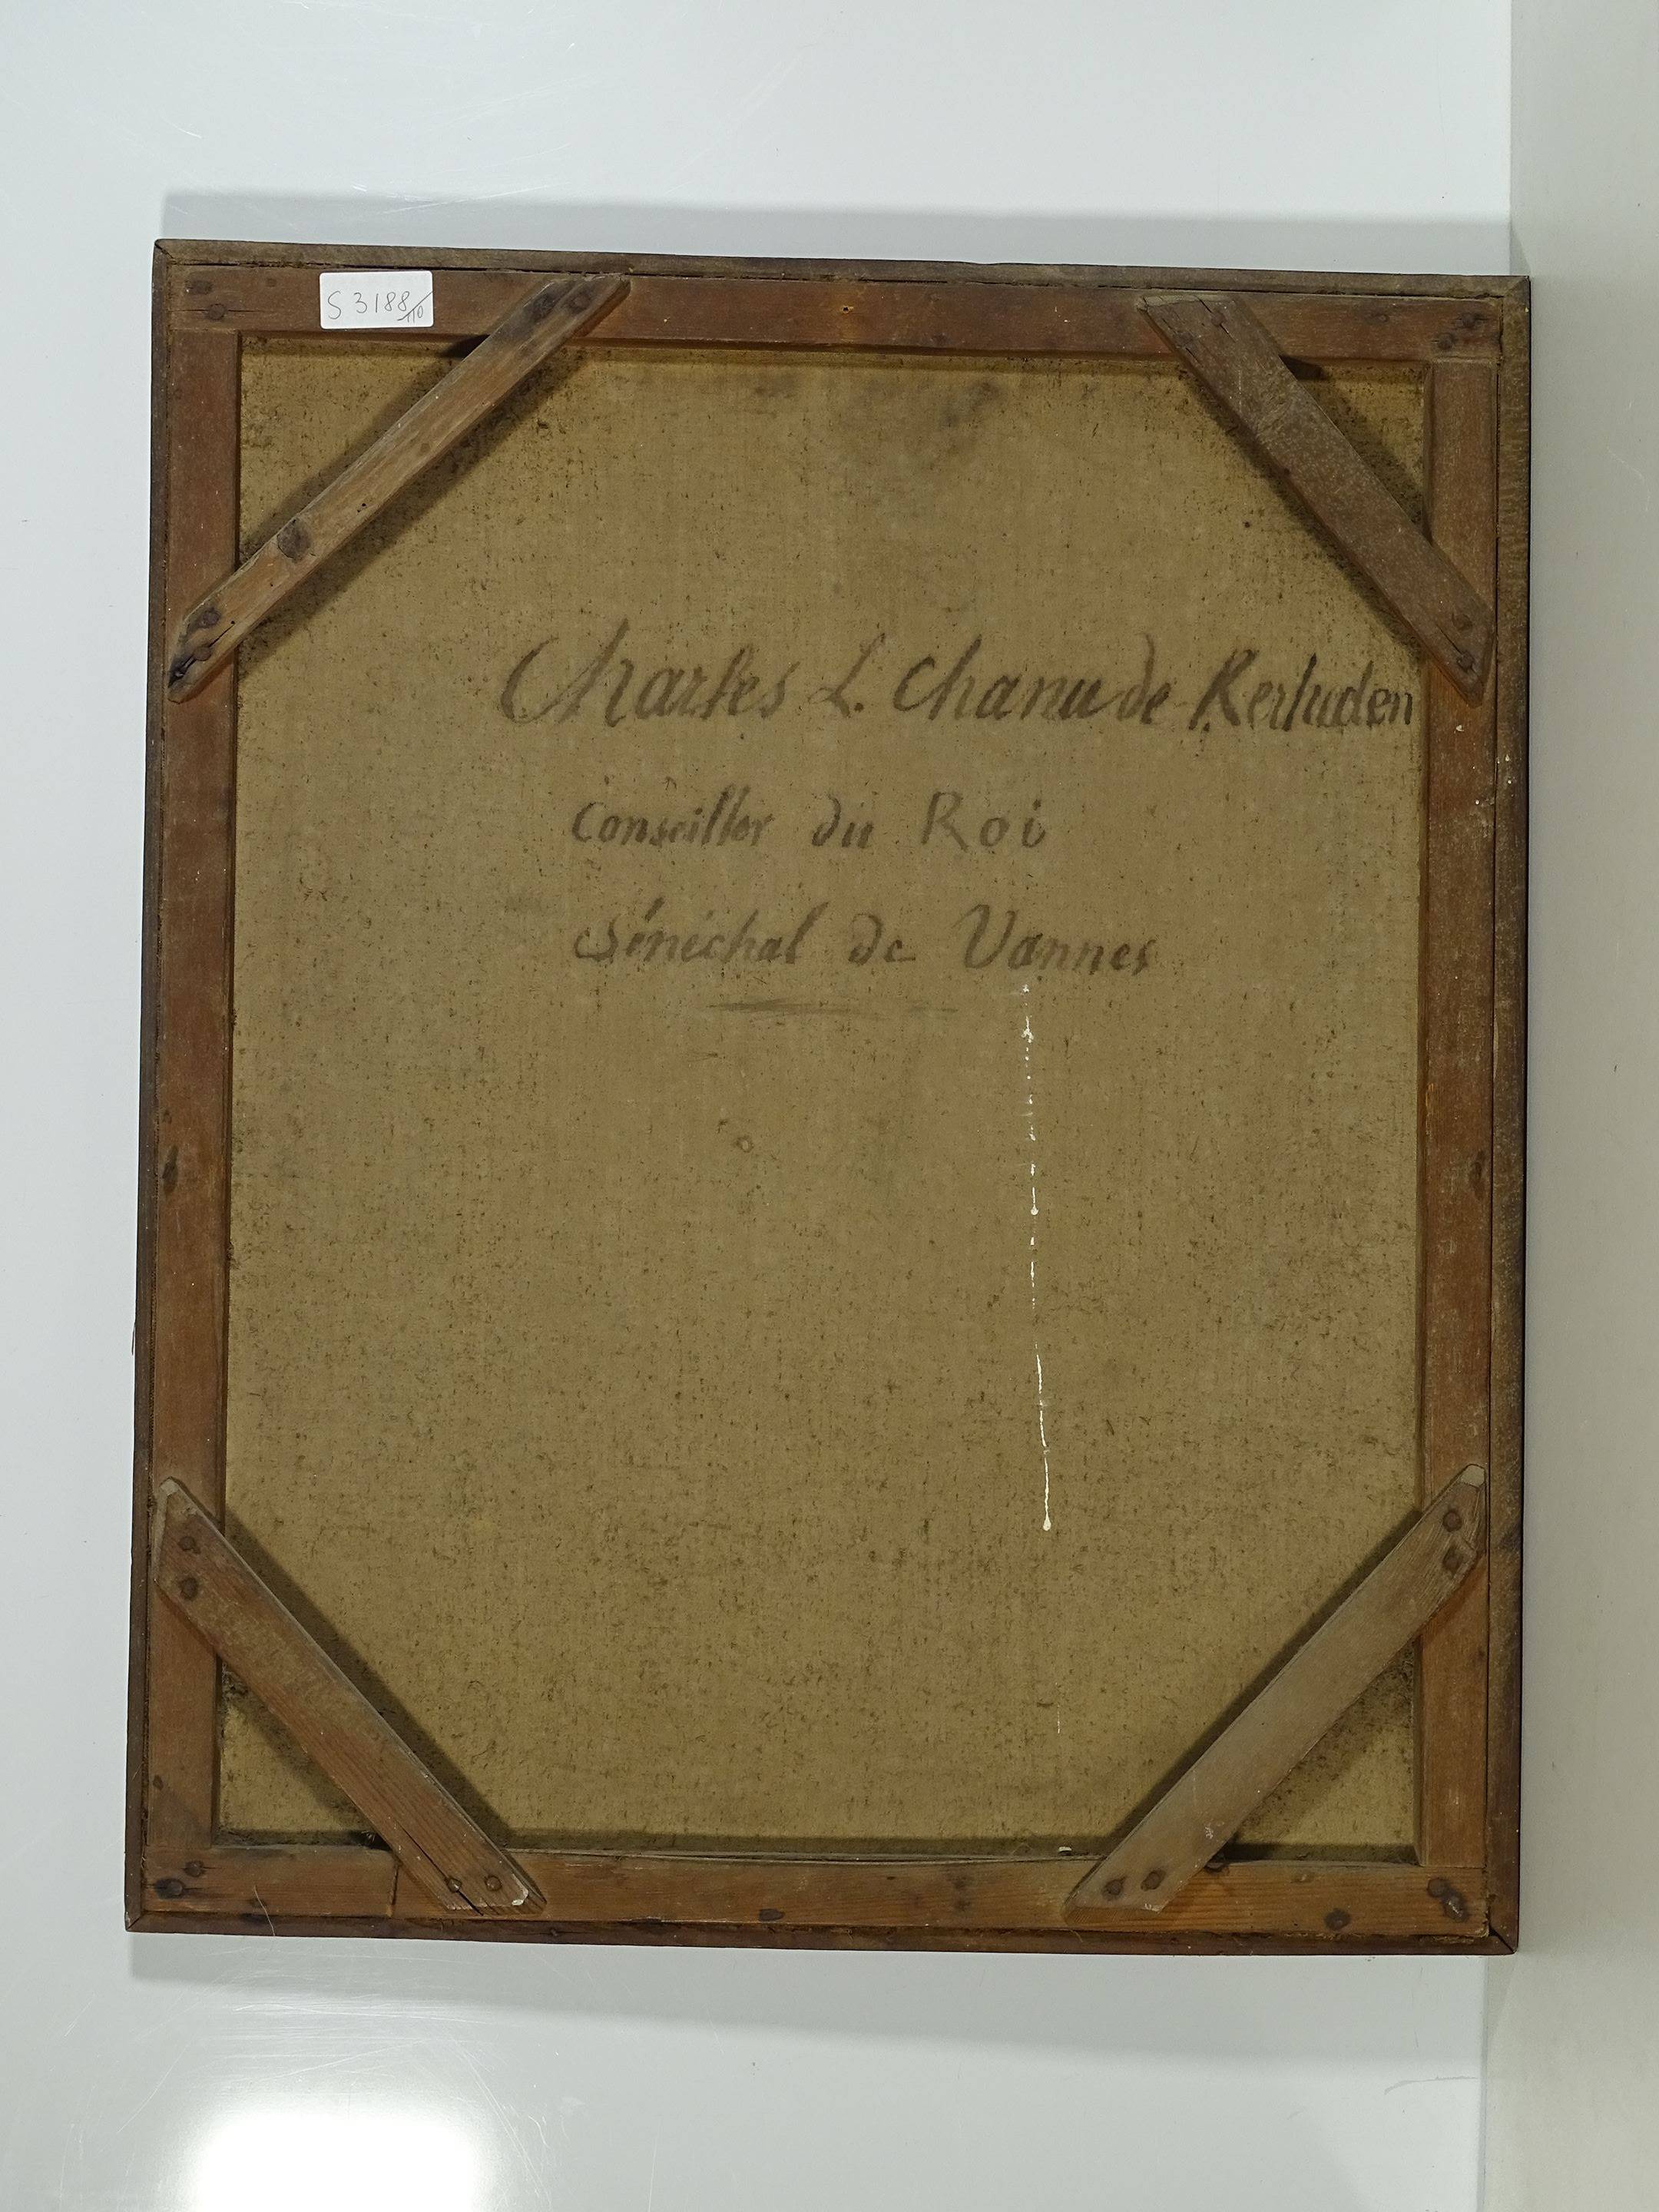 S 3188/110
Charles L. Chanu de Kerluden
Conseiller du Roi
Sénéchal de Vannes